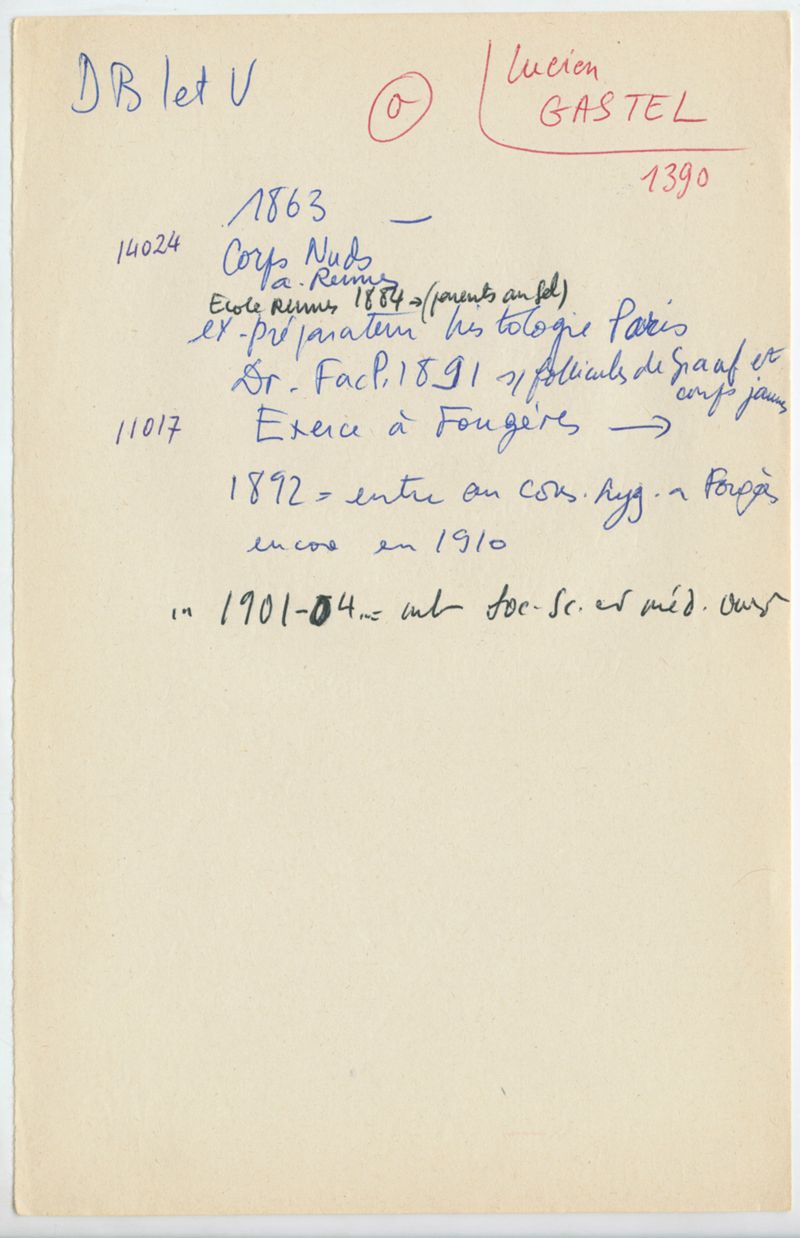 DB let V
o
Lucien
GASTEL
1390
1863 —
14024
Corps Nuds
a. Rennes
Ecole Rennes 1884 → (parents au Sel)
ex-préparateur histologie Paris
Dr. FacP. 1891 s/ follicules de Graaf et
corps jaunes
11017 Exerce à Fougères →
1892 = entre au cons. hyg. a Fougères
encore en 1910
in 1901-04 = mb Soc. Sc. et méd. Ouest